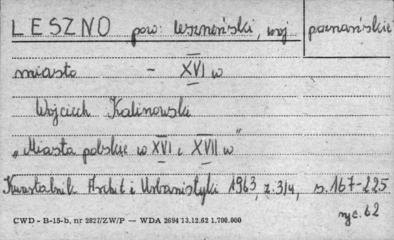 LESZNO pow: leszneński, woj. poznańskie
miasto - XVI w
Wojciech Kalinowski
„Miasta polskie w XVI i XVII w”
Kwartalnik Archit i Urbanistyki 1963, z. 3/4, s. 167-225
ryc. 62
CWD - B-15-b, nr 2827/ZW/P — WDA 2694 13.12.62 1.700.000